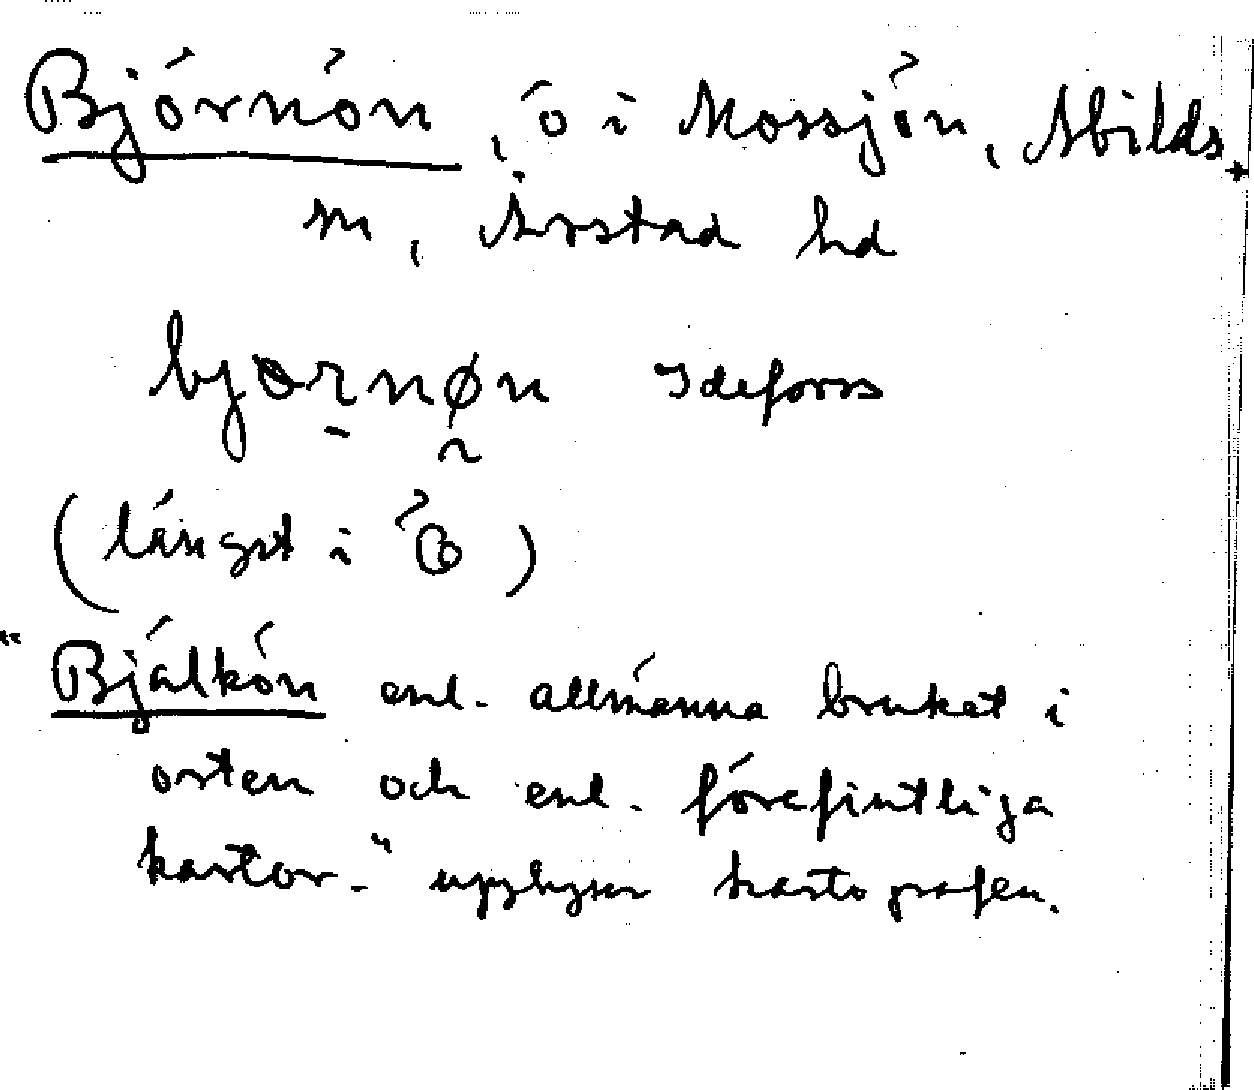 Björnön, ö i Mossjön, Abilds
sn, Årstad hd
bjørnøn Ideforss
(längst i Ö)
"Bjälkön enl. allmänna bruket i
orten och enl. förefintliga
kartor." upplyser kartografen.